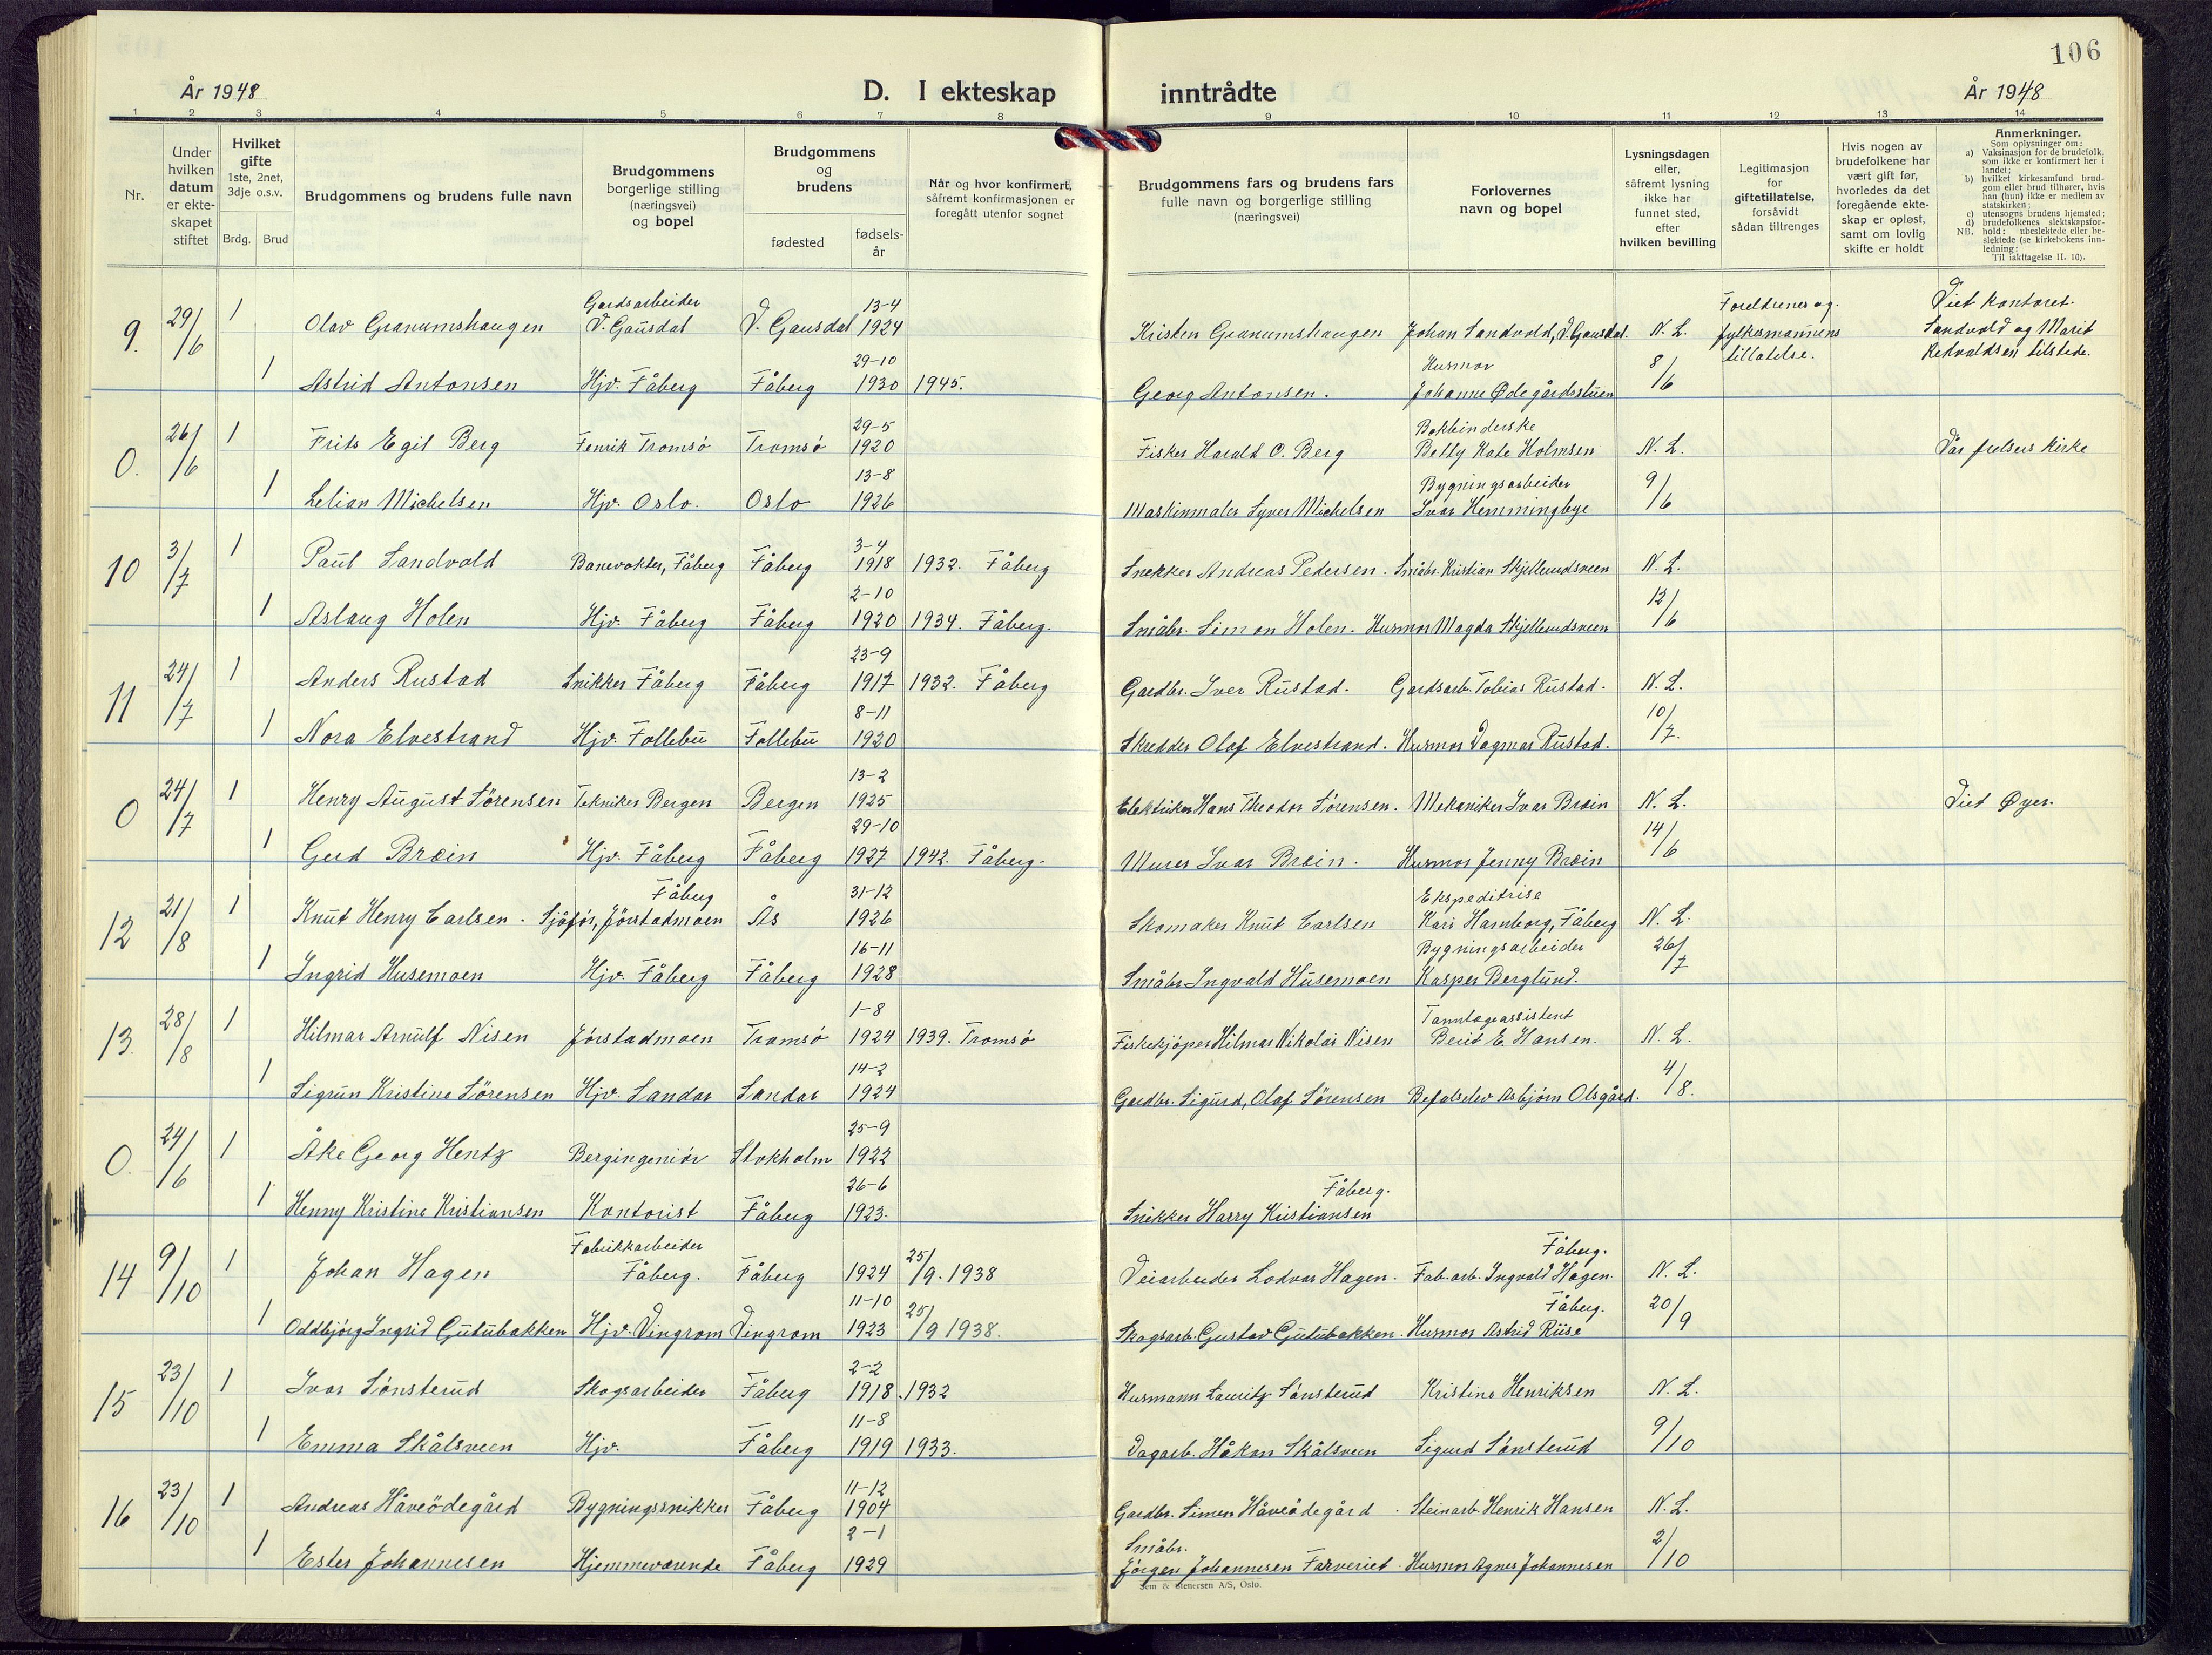 106
År 1948
D. I ekteskap inntrådte
År 1948
1 2 3 4 5 6 7 8 9 10 11 12 13 14
Nr.
Under hvilken datum er ekte-skapet stiftet
Hvilket gifte 1ste, 2net, 3dje o.s.v.
Brdg. Brud
Brudgommens og brudens fulle navn
Brudgommens borgerlige stilling (næringsvei) og bopel
Brudgommens og brudens
fødested
fødsels-år
Når og hvor konfirmert, såfremt konfirmasjonen er foregått utenfor sognet
Brudgommens fars og brudens fars fulle navn og borgerlige stilling (næringsvei)
Forlovernes navn og bopel
Lysningsdagen eller, såfremt lysning ikke har funnet sted, efter hvilken bevilling
Legitimasjon for giftetillatelse, forsåvidt sådan tiltrenges
Hvis nogen av brudefolkene har vært gift før, hvorledes da det foregående ekte-skap er opløst, samt om lovlig skifte er holdt
Anmerkninger.
Som oplysninger om:
a) Vaksinasjon for de brudefolk, som ikke er konfirmert her i landet;
b) hvilket kirkesamfund brud-gom eller brud tilhører, hvis han (hun) ikke er medlem av statskirken;
c) utensogns brudens hjemsted;
d) brudefolkenes slektskapsfor-
NB. hold: ubeslektede eller be-slektede (se kirkebokens inn-ledning:
Til iakttagelse II. 10).
9. 29/6 1 Olav Granumshaugen Gardsarbeider V. Gausdal V. Gausdal 13-4 1924 Kristen Granumshaugen Johan Sandvold, V. Gausdal. N. L. Foreldrenes og fylkesmannens tillatelse. Viet kontoret. Sandvold og Marit Redvaldsen tilstede.
1 Astrid Antonsen Hjv. Fåberg Fåberg 29-10 1930 1945. Georg Antonsen. Husmor Johanne Ødegårdsstuen 8/6
0. 26/6 1 Frits Egil Berg Fenrik Tromsö Tromsö 29-5 1920 Fisker Harald O. Berg Bokbinderske Betty Kate Holmsen N. L. Vår frelsers kirke
1 Lelian Michelsen Hjv. Oslo. Oslo 13-8 1926 Maskinmaler Syver Michelsen Bygningsarbeider Ivar Hemmingbye 9/6
10 3/7 1 Paul Sandvold Banevokter, Fåberg Fåberg 3-4 1918 1932. Fåberg Snekker Andreas Pedersen. Småbr. Kristian Skjellerudsveen N. L.
1 Aslaug Holen Hjv. Fåberg Fåberg 2-10 1920 1934. Fåberg. Småbr. Simon Holen. Husmor Magda Skjellerudsveen 12/6
11 24/7 1 Anders Rustad Snikker Fåberg Fåberg 23-9 1917 1932. Fåberg Gardbr. Iver Rustad. Gardsarb. Tobias Rustad. N. L.
1 Nora Elvestrand Hjv. Follebu Follebu 8-11 1920 Skredder Olof Elvestrand. Husmor Dagmar Rustad. 10/7.
0 24/7 1 Henry August Sörensen Tekniker Bergen Bergen 13-2 1925 Elektriker Hans Theodor Sörensen. Mekaniker Ivar Bræin N. L. Viet Øyer.
1 Gerd Bræin Hjv. Fåberg Fåberg 29-10 1927 1942. Fåberg. Murer Ivar Bræin. Husmor Jenny Bræin 14/6
12 21/8 1 Knut Henry Carlsen. Sjåför, Jörstadmoen Fåberg Ås 31-12 1926 Skomaker Knut Carlsen Ekspeditrise Kari Hamborg, Fåberg N. L.
1 Ingrid Husemoen Hjv. Fåberg Fåberg 16-11 1928 Småbr. Ingvald Husemoen Bygningsarbeider Kasper Berglund. 26/7
13. 28/8 1 Hilmar Arnulf Nisen Jörstadmoen Tromsö 1-8 1924 1939. Tromsö Fiskekjöper Hilmar Nikolai Nisen Tannlegeassistent Berit E. Hansen. N. L.
1 Sigrun Kristine Sörensen Hjv. Sandar Sandar 14-2 1924 Gardbr. Sigurd, Olaf Sörensen Befalselev Asbjörn Olsgård. 4/8.
0. 24/6 1 Åke Georg Hentz Bergingeniör Stokholm 25-9 1922
1 Henny Kristine Kristiansen Kontorist Fåberg 26-6 1923. Snikker Harry Kristiansen Fåberg.
14 9/10 1 Johan Hagen Fabrikkarbeider Fåberg. Fåberg 1924 25/9. 1938 Veiarbeider Lodvar Hagen. Fab. arb. Ingvald Hagen. Fåberg. N. L.
1 Oddbjörg Ingrid Gutubakken Hjv. Vingrom Vingrom 11-10 1923 25/9 1938. Skogsarb. Gustav Gutubakken. Husmor Astrid Riise Fåberg. 20/9
15 23/10 1 Ivar Sönsterud Skogsarbeider Fåberg 2-2 1918. 1932 Husmann Lauritz Sönsterud Kristine Henriksen N. L.
1 Emma Skålsveen Hjv. Fåberg 11-8 1919 1933. Dagarb. Håkon Skålsveen Sigurd Sönsterud 9/10
16 23/10 1 Andreas Håveödegård Bygningssnikker Fåberg 11-12 1904 Gardbr. Simen Håveödegård. Steinarb. Henrik Hansen N. L.
1 Ester Johannesen Hjemmeværende Fåberg 2-1 1929 Småbr. Jörgen Johannesen Farveriet. Husmor Agnes Johannesen 2/10
Sem & Stenersen A/S, Oslo.